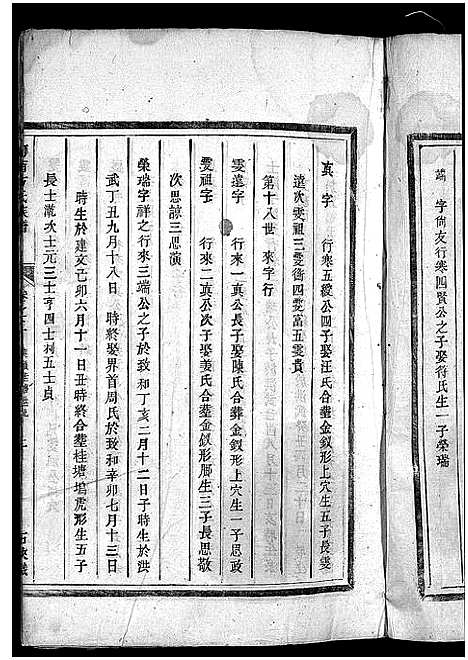 端　字尙友行寒四賢公之子娶符氏生一子榮瑞
真　字　行寒五緩公四子娶汪氏合塟金釵形上穴生五子長雯
遠次雯祖三雯衡四雯富五雯貴
第十八世　來字行
雯遠字　行來一真公長子娶陳氏合葬金釵形上穴生一子思政
雯祖字　行來二真公次子娶姜氏合塟金釵形厝生三子長思敬
次思諒三思演
榮瑞字祥之行來三端公之子於致和丁亥二月十二日子時生於洪
武丁丑九月十八日　時終娶界首周氏於致和辛卯七月十三日
時生於建文己卯六月十一日丑時終合塟桂塘塢虎形生五子
長士瀧次士元三士亨四士利五士貞